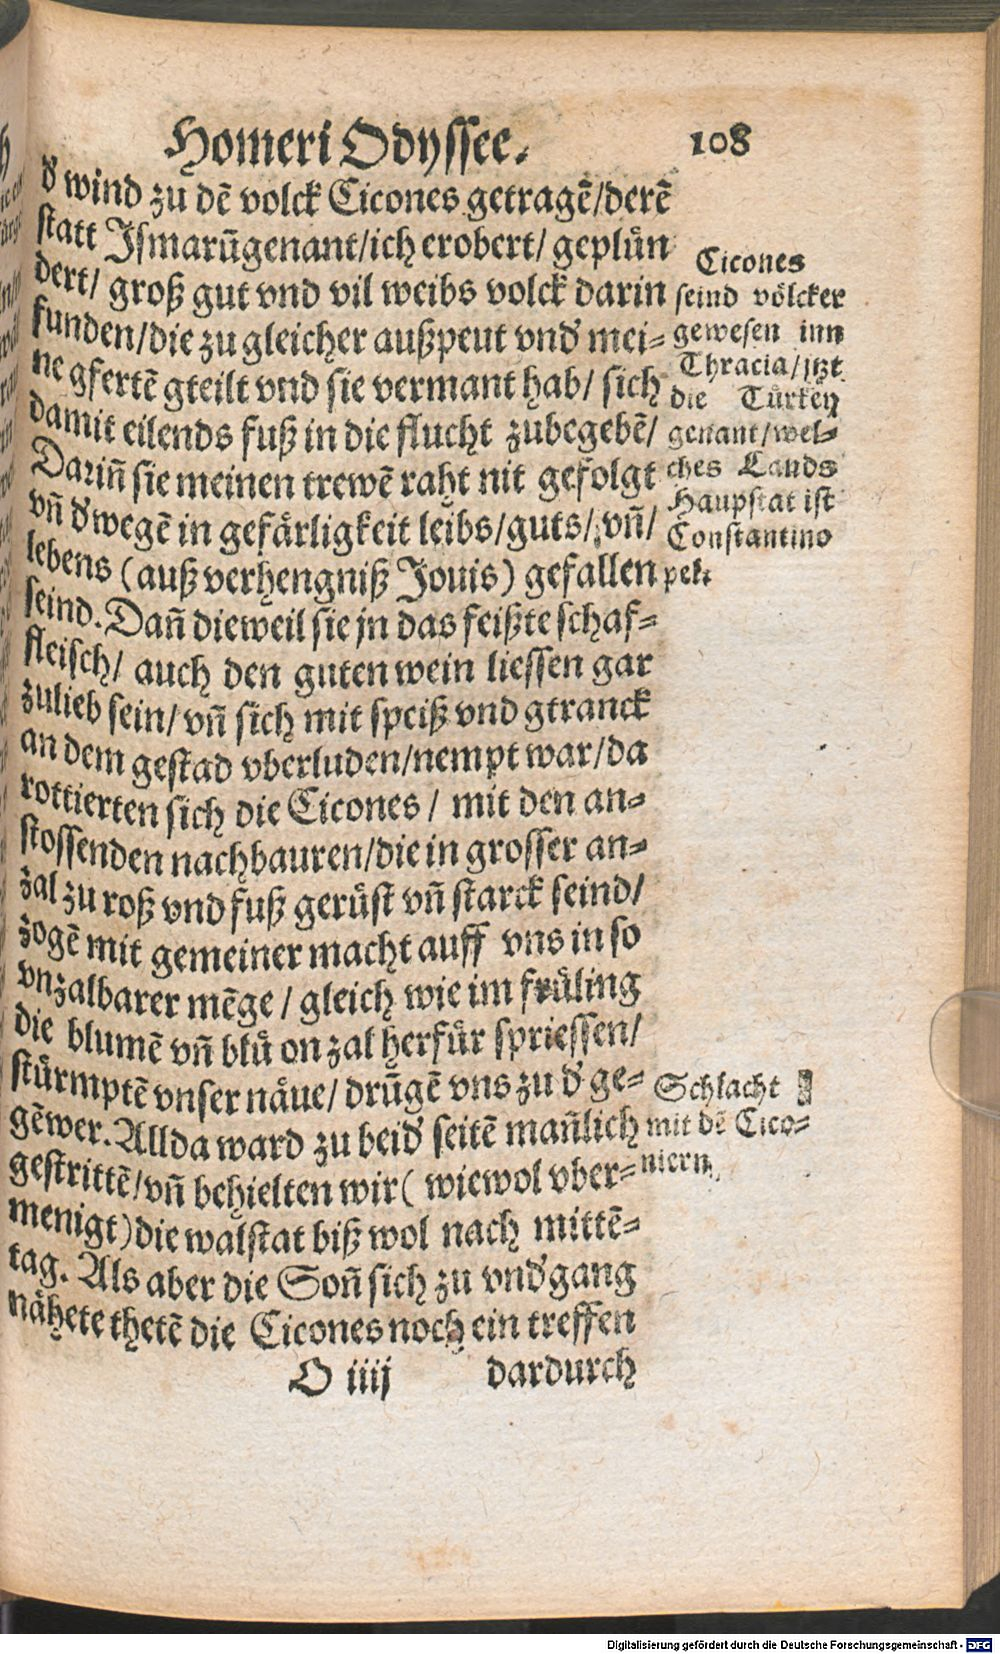 Homeri Odyssee. 108
d̕ wind zu dē volck Cicones getragē/derē
statt Jsmarūgenant/ich erobert/ geplün
dert/ groß gut vnd vil weibs volck darin
funden/die zu gleicher außpeut vnd̕ mei-
ne gfertē gteilt vnd sie vermant hab/ sich
damit eilends fuß in die flucht zubegebē/
Dariñ sie meinen trewē raht nit gefolgt
vñ d̕wegē in gefärligkeit leibs/guts/ vñ/
lebens (auß verhengniß Jouis) gefallen
seind. Dañ dieweil sie jn das feißte schaf-
fleisch/ auch den guten wein liessen gar
zulieb sein/ vñ sich mit speiß vnd gtranck
an dem gestad vberluden/nempt war/da
rottierten sich die Cicones / mit den an-
stossenden nachbauren/die in grosser an-
zal zu roß vnd fuß gerüst vñ starck seind/
zogē mit gemeiner macht auff vns in so
vnzalbarer mēge / gleich wie im früling
die blumē vñ blü on zal herfür spriessen/
stürmptē vnser näue/ drūgē vns zu d̕ ge-
gēwer. Allda ward zu beid̕ seitē mañlich
gestrittē/vñ behielten wir ( wiewol vber-
menigt) die walstat biß wol nach mittē-
tag. Als aber die Soñ sich zu vnd̕gang
nähete thetē die Cicones noch ein treffen
O iiij dardurch
Cicones
seind völcker
gewesen inn
Thracia/jtzt
die Türkey
genant/wel-
ches Lands
Haupstat ist
Constantino
pel.
Schlacht
mit dē Cico-
niern.
Digitalisierung gefördert durch die Deutsche Forschungsgemeinschaft - DFG